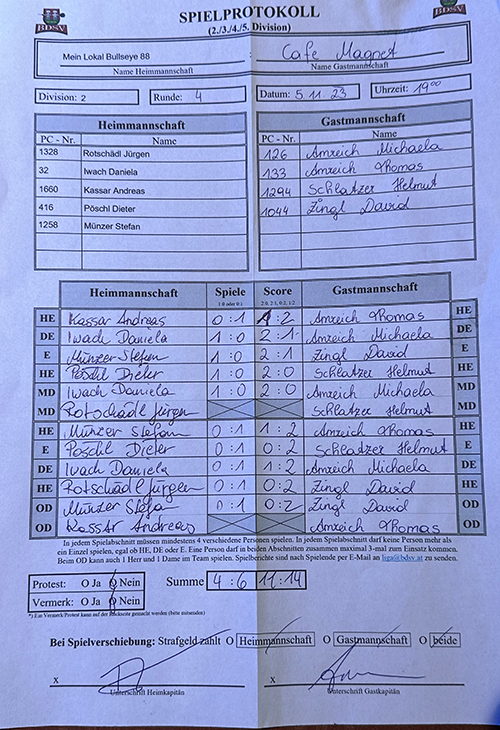 BDSV SPIELPROTOKOLL BDSV
(2./3./4./5. Division)
Mein Lokal Bullseye 88 : Cafe Magnet
Name Heimmannschaft Name Gastmannschaft
Division: 2 Runde: 4 Datum: 5.11.23 Uhrzeit: 19⁰⁰
Heimmannschaft Gastmannschaft
PC - Nr. Name PC - Nr. Name
1328 Rotschädl Jürgen 126 Amreich Michaela
32 Iwach Daniela 133 Amreich Thomas
1660 Kassar Andreas 1294 Schlatzer Helmut
416 Pöschl Dieter 1044 Zingl David
1258 Münzer Stefan
Heimmannschaft Spiele Score Gastmannschaft
1:0 oder 0:1 2:0, 2:1, 0:2, 1:2
HE Kassar Andreas 0:1 1:2 Amreich Thomas HE
DE Iwach Daniela 1:0 2:1 Amreich Michaela DE
E Münzer Stefan 1:0 2:1 Zingl David E
HE Pöschl Dieter 1:0 2:0 Schlatzer Helmut HE
MD Iwach Daniela 1:0 2:0 Amreich Michaela MD
MD Rotschädl Jürgen Schlatzer Helmut MD
HE Münzer Stefan 0:1 1:2 Amreich Thomas HE
E Pöschl Dieter 0:1 0:2 Schlatzer Helmut E
DE Iwach Daniela 0:1 1:2 Amreich Michaela DE
HE Rotschädl Jürgen 0:1 0:2 Zingl David HE
OD Münzer Stefan 0:1 0:2 Zingl David OD
OD Kassar Andreas Amreich Thomas OD
In jedem Spielabschnitt müssen mindestens 4 verschiedene Personen spielen. In jedem Spielabschnitt darf keine Person mehr als
ein Einzel spielen, egal ob HE, DE oder E. Eine Person darf in beiden Abschnitten zusammen maximal 3-mal zum Einsatz kommen.
Beim OD kann auch 1 Herr und 1 Dame im Team spielen. Spielberichte sind nach Spielende per E-Mail an liga@bdsv.at zu senden.
Protest: O Ja O Nein Summe 4:6 11:14
Vermerk: O Ja O Nein
*) Ein Vermerk/Protest kann auf der Rückseite gemacht werden (bitte mitsenden)
Bei Spielverschiebung: Strafgeld zahlt O Heimmannschaft O Gastmannschaft O beide
x x
Unterschrift Heimkapitän Unterschrift Gastkapitän